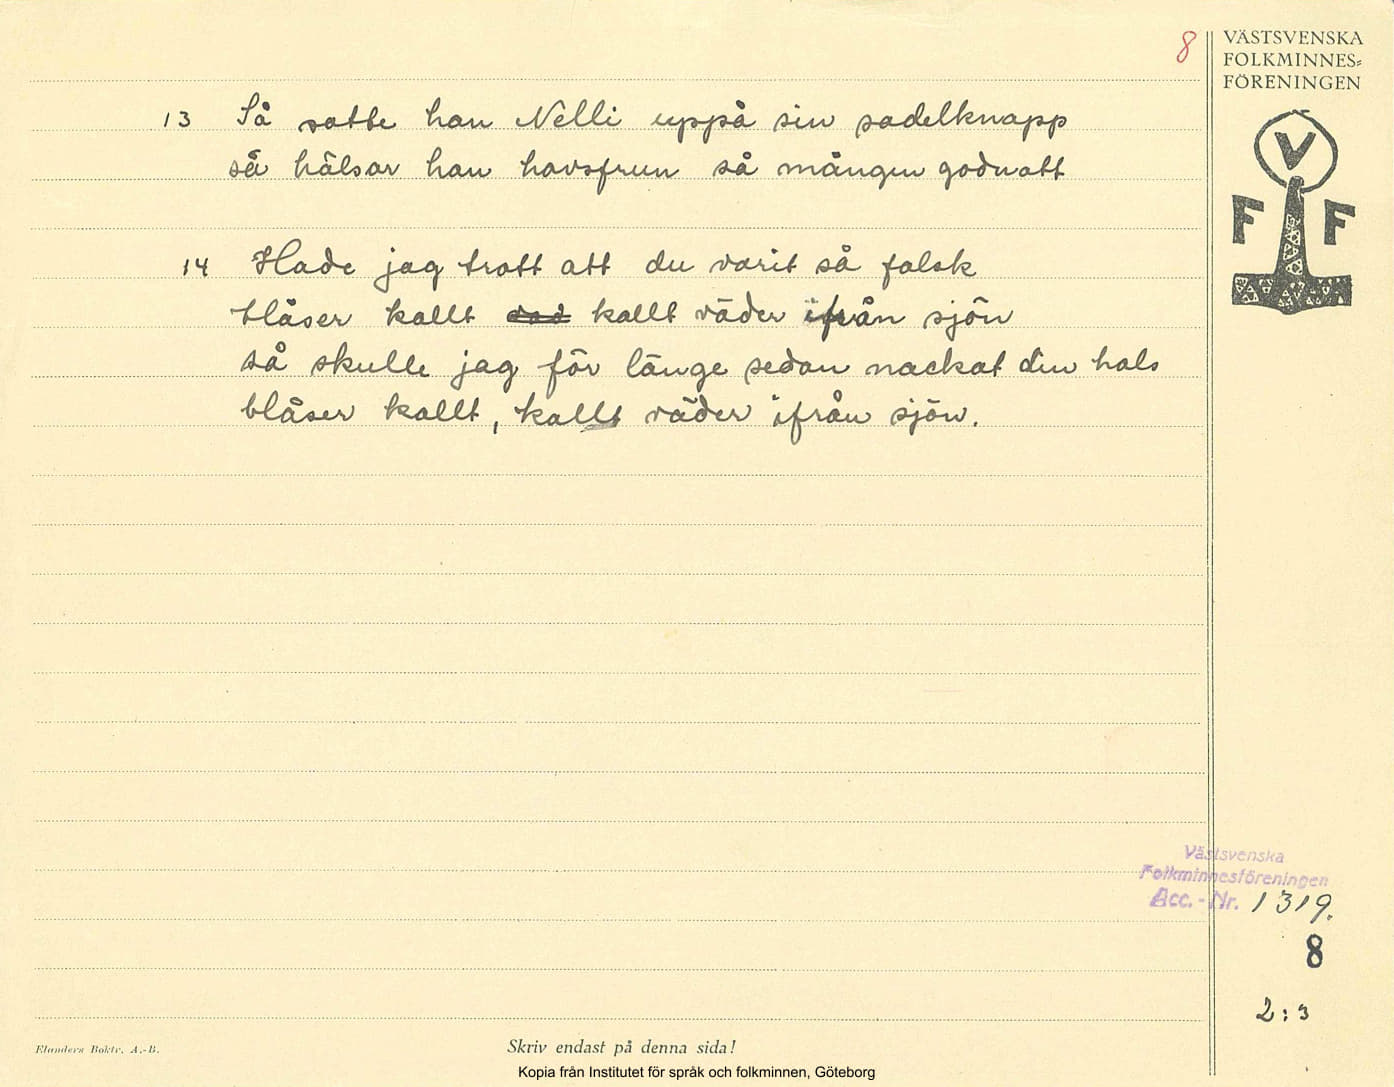 8
VÄSTSVENSKA
FOLKMINNES=
FÖRENINGEN
V
F F
13 Så satte han Nelli uppå sin sadelknapp
så hälsar han havsfrun så mången godnatt
14 Hade jag trott att du varit så falsk
blåser kallt kallt väder ifrån sjön
så skulle jag för länge sedan nackat din hals
blåser kallt, kallt väder ifrån sjön.
Västsvenska
Folkminnesföreningen
Acc.-Nr. 1319.
8
2:3
Elanders Boktr. A.-B.
Skriv endast på denna sida!
Kopia från Institutet för språk och folkminnen, Göteborg